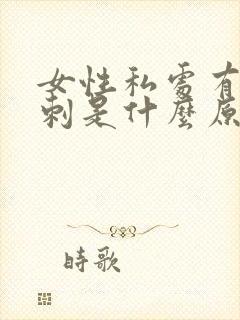 女性私處有
刺是什麼原
時歌